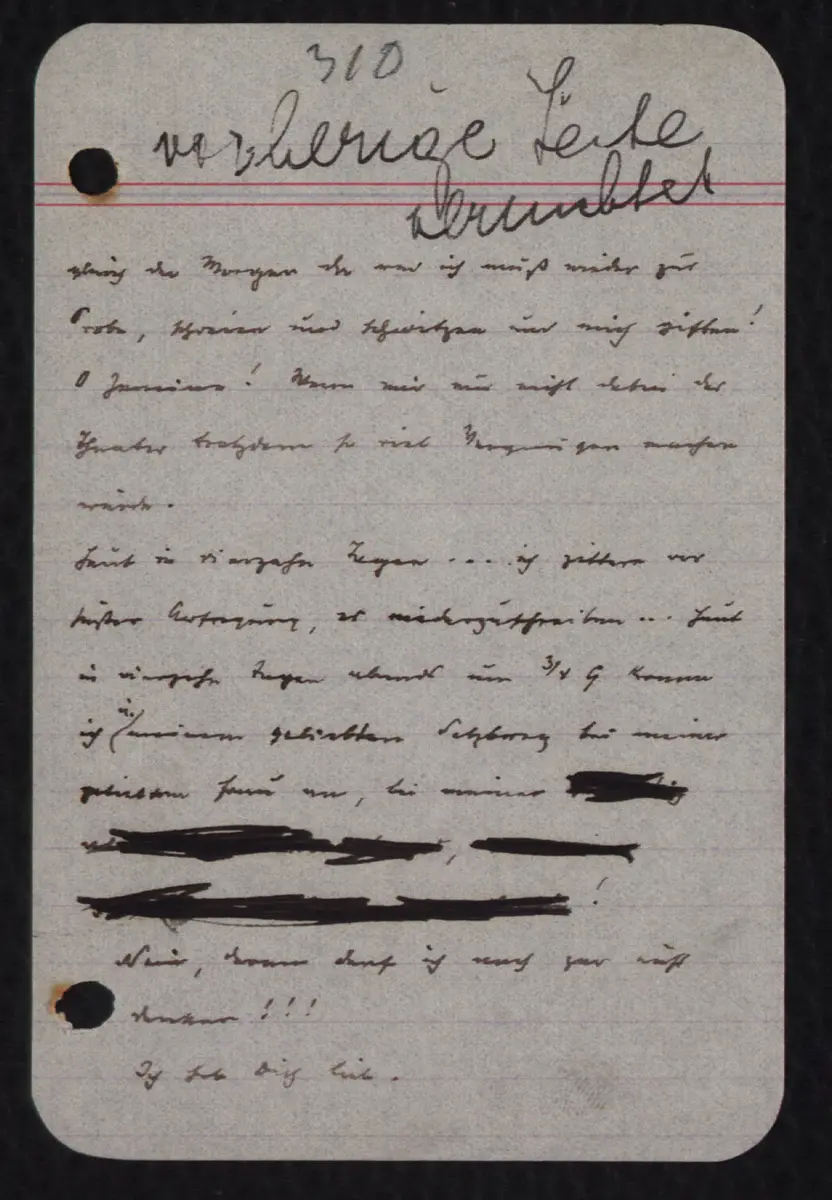 310
vorherige Seite
vernichtet
gleich der Morgen da war ich muß wieder zur
Probe, schreien und schwitzen und mich giften!
O Jammer! Wenn mir nur nicht dabei das
Theater trotzdem so viel Vergnügen machen
würde.
Heut in vierzehn Tagen ... ich zittere vor
süßer Aufregung, es niederzuschreiben ... heut
in vierzehn Tagen abends um 3/4 9 komme
ich u. meinem geliebten Salzburg bei meiner
geliebten Frau an, bei meiner
,
!
Nein, daran darf ich noch gar nicht
denken!!!
Ich hab Dich lieb.